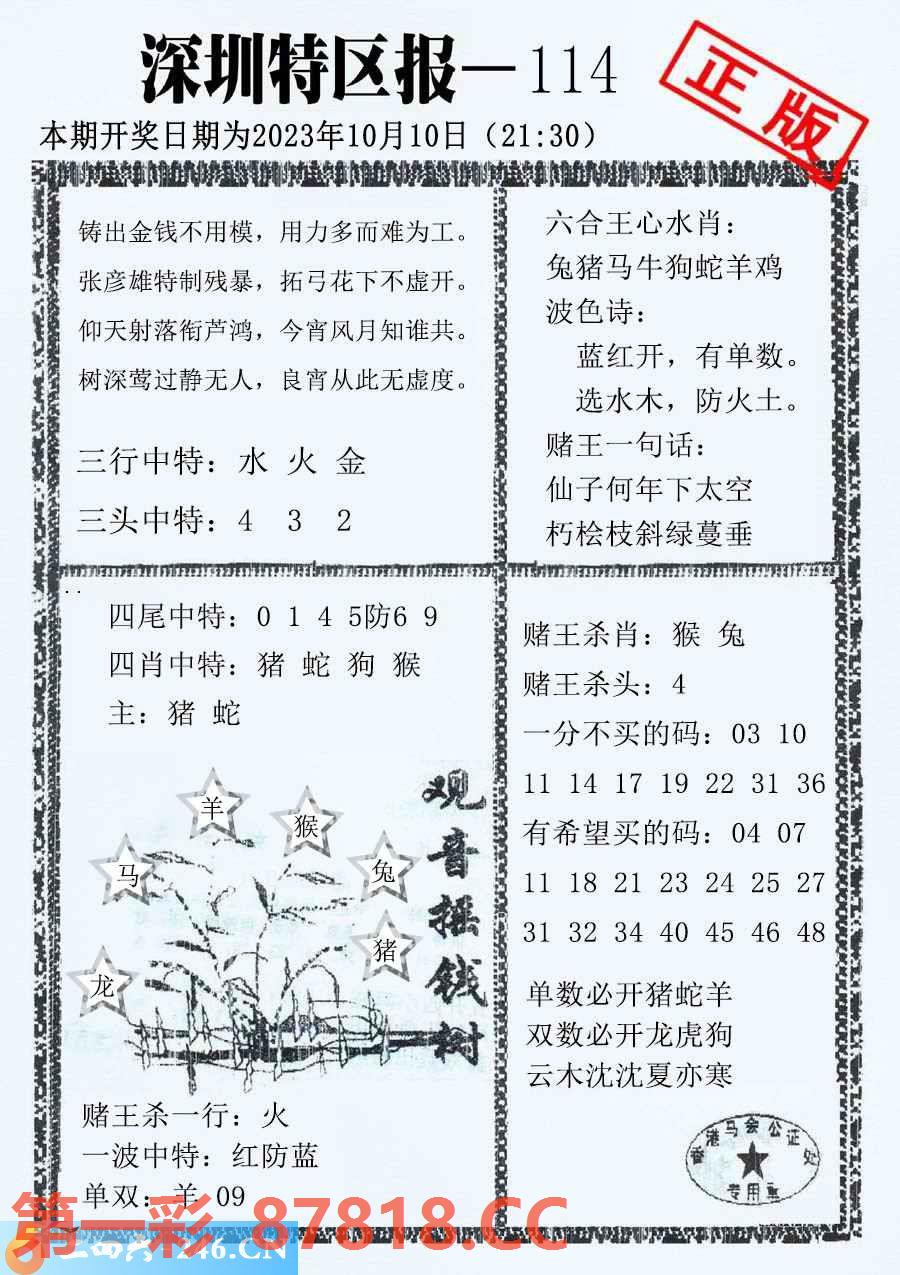 深圳特区报—114
正版
本期开奖日期为2023年10月10日（21:30）
铸出金钱不用模，用力多而难为工。
张彦雄特制残暴，拓弓花下不虚开。
仰天射落衔芦鸿，今宵风月知谁共。
树深莺过静无人，良宵从此无虚度。
三行中特：水 火 金
三头中特：4 3 2
六合王心水肖：
兔猪马牛狗蛇羊鸡
波色诗：
蓝红开，有单数。
选水木，防火土。
赌王一句话：
仙子何年下太空
朽桧枝斜绿蔓垂
四尾中特：0 1 4 5防6 9
四肖中特：猪 蛇 狗 猴
主：猪 蛇
观音摇钱树
羊
猴
马
兔
猪
龙
赌王杀一行：火
一波中特：红防蓝
单双：羊 09
赌王杀肖：猴 兔
赌王杀头：4
一分不买的码：03 10
11 14 17 19 22 31 36
有希望买的码：04 07
11 18 21 23 24 25 27
31 32 34 40 45 46 48
单数必开猪蛇羊
双数必开龙虎狗
云木沈沈夏亦寒
香港马会公证处
专用章
第一彩 87818.CC
246.CN